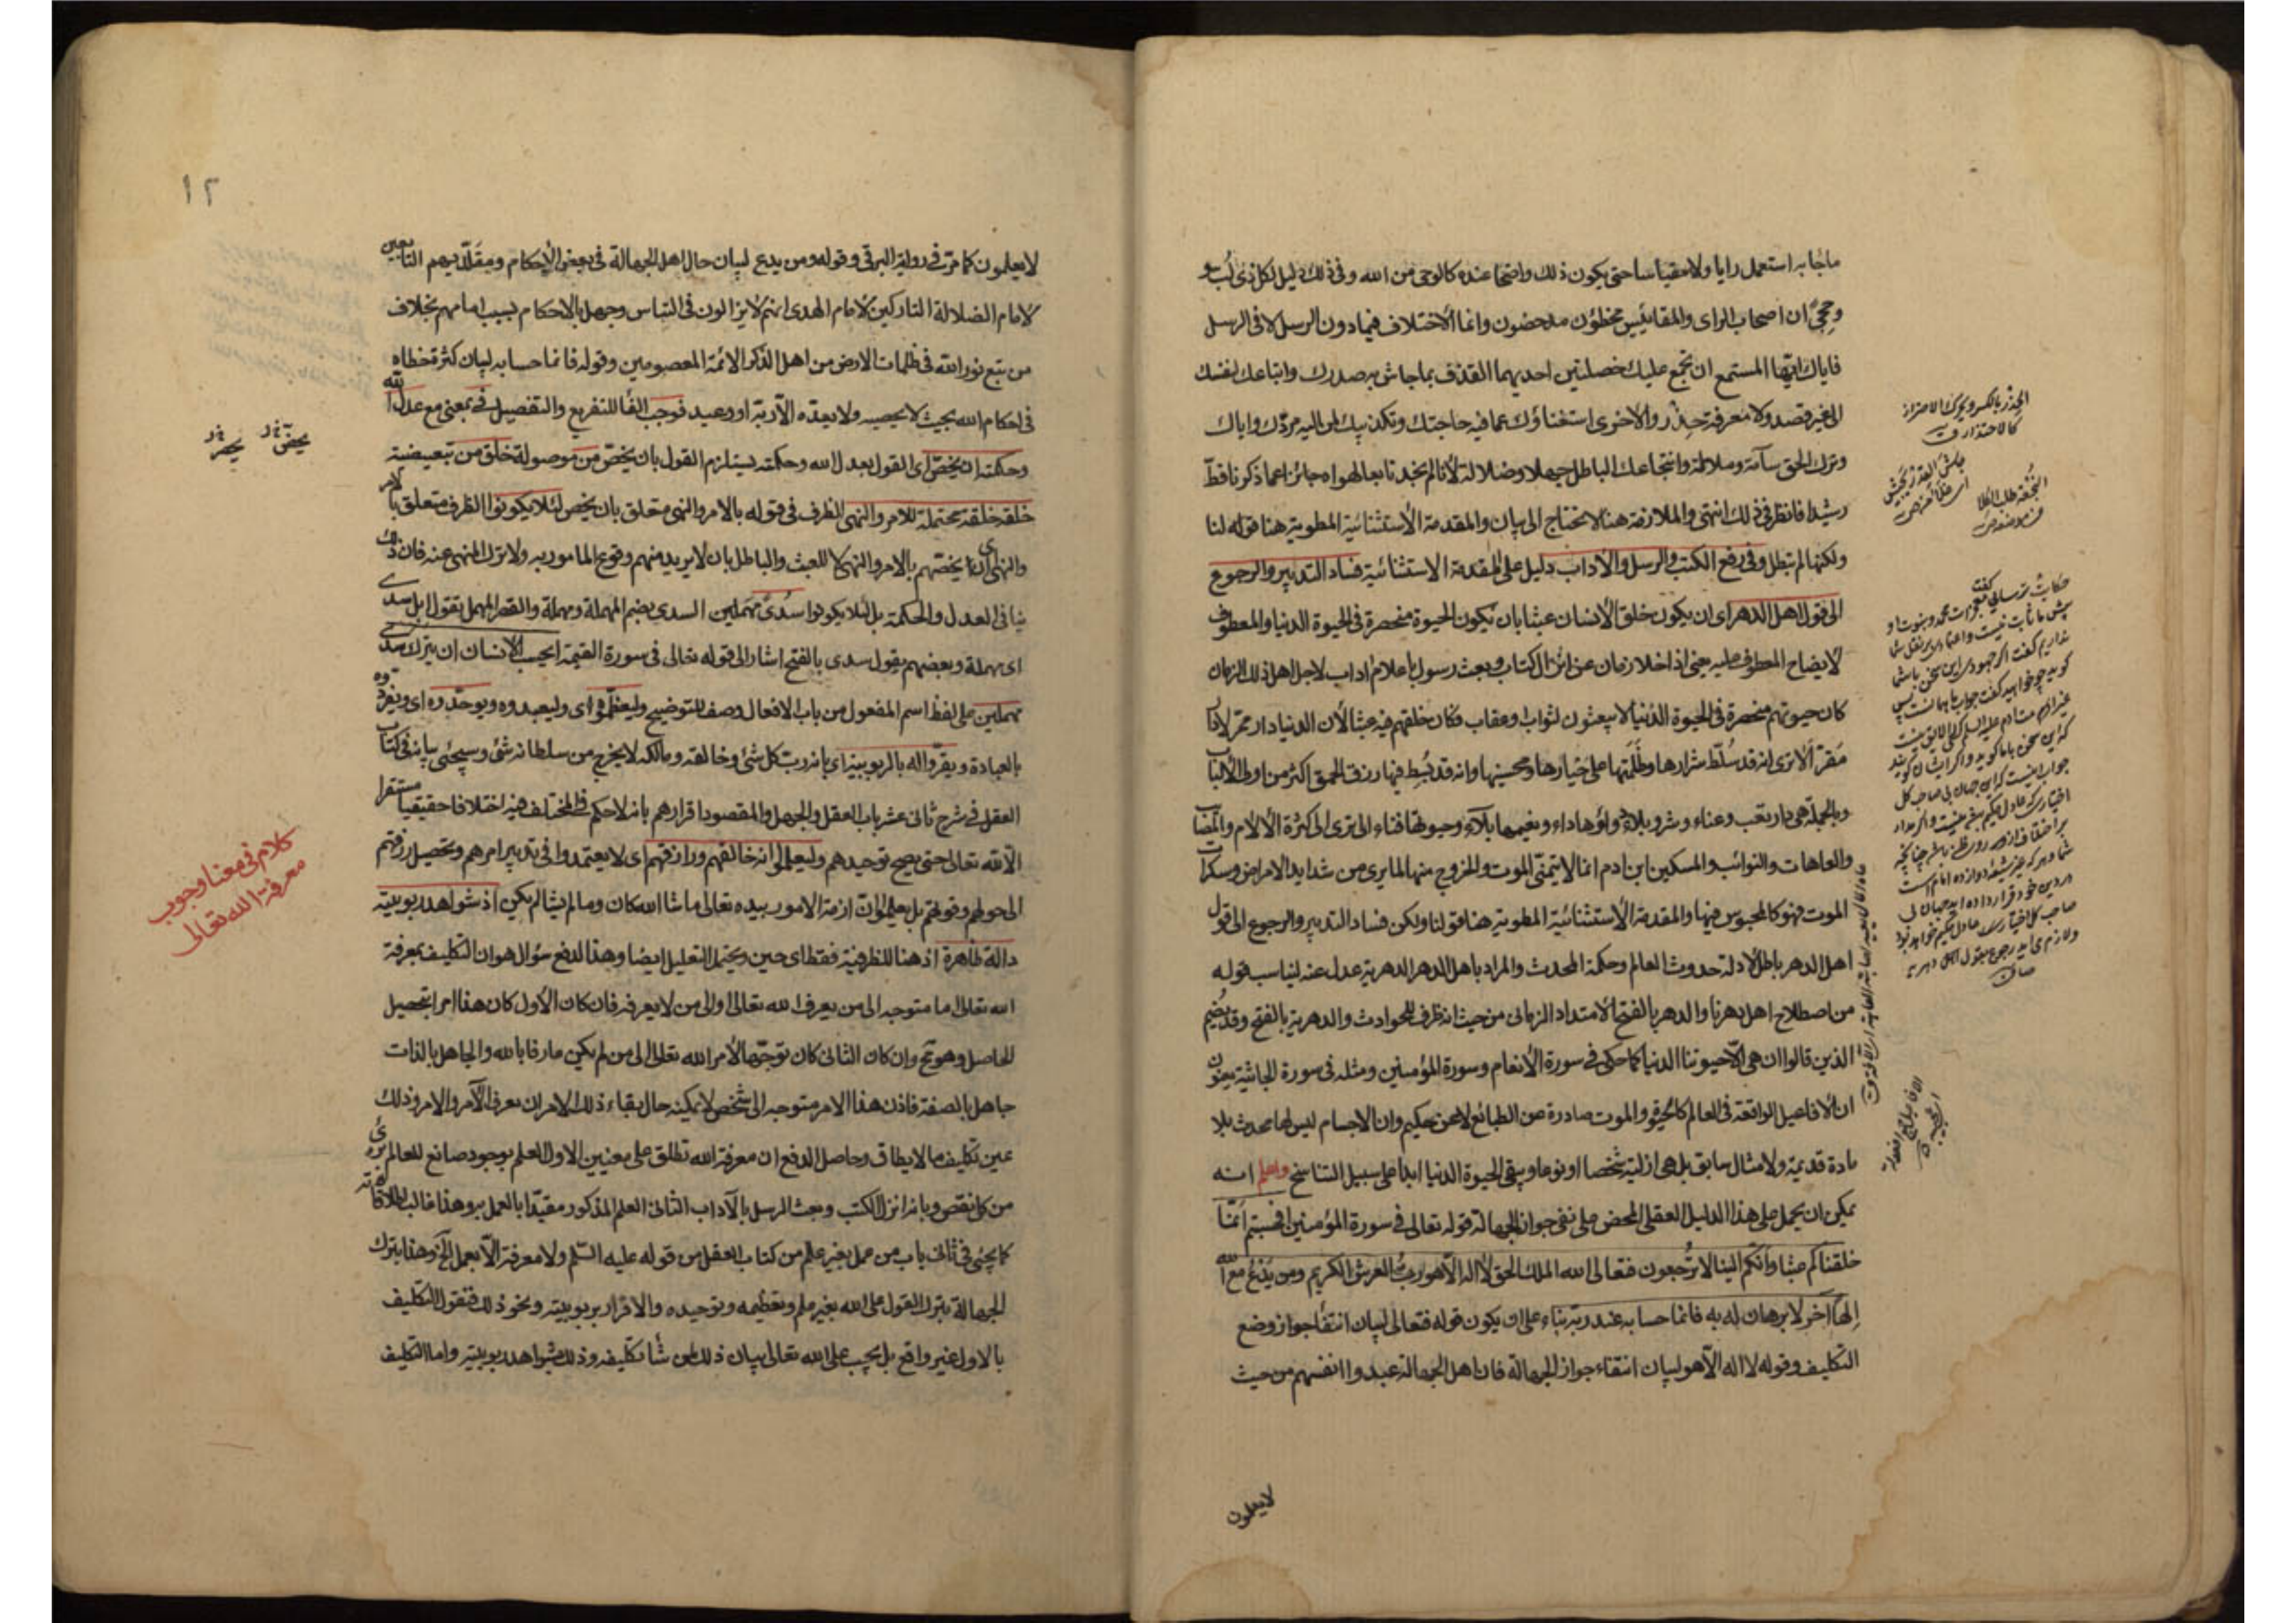 ماجا به استعمل رايا ولا مقياسا حتى يكون ذلك واضحا عنده كالوحى من الله وفى ذلك دليل لكل ذى لب و
وحجى ان اصحاب الراى والمقاييس مخطؤن مدحضون وانما الاختلاف فيما دون الرسل لا فى الرسل
فاياك ايها المستمع ان تجمع عليك خصلتين احديهما القذف بما جاش به صدرك واتباعك لنفسك
الى غير قصد ولا معرفة حد والاخرى استغناؤك عما فيه حاجتك وتكذيبك لمن اليه مردك واياك
وترك الحق سآمة وملالة وانتجاعك الباطل جهلا وضلالة لانا لم نجد تابعا لهواه جائزا عما ذكرنا قط
رشيدا فانظر فى ذلك انتهى والملازمة هنا لا تحتاج الى بيان والمقدمة الاستثنائية المطوية هنا قوله لنا
ولكنها لم تبطل وفى رفع الكتب والرسل والاداب دليل على المقدمة الاستثنائية فساد التدبير والرجوع
الى قول اهل الدهر اى ان يكون خلق الانسان عبثا بان يكون الحيوة منحصرة فى الحيوة الدنيا والمعطوف
لايضاح المعطوف عليه يعنى اذ اخلا زمان عن انزال كتاب وبعث رسول باعلام اداب لاجل اهل ذلك الزمان
كان حيوتهم منحصرة فى الحيوة الدنيا لا يبعثون لثواب وعقاب فكان خلقهم فيه عبثا لان الدنيا دار ممر لا دار
مقر الا ترى انه قد سلط شرارها وظلمتها على خيارها ومحسنيها وانه قد بسط فيها رزق الحمقى اكثر من اولى الالباب
وبالجملة هى دار تعب وعناء وشر وبلاء دواؤها داء ونعيمها بلاء وحيوتها فناء الى ترى الى كثرة الالام والمصائب
والعاهات والنوائب والمسكين ابن ادم انما لا يتمنى الموت والخروج منها لما يرى من شدايد الامراض وسكرات
الموت فهو كالمحبوس فيها والمقدمة الاستثنائية المطوية هنا قولنا ولكن فساد التدبير والرجوع الى قول
اهل الدهر باطل لادلة حدوث العالم وحكمة المحدث والمراد باهل الدهر الدهرية عدل عنه ليناسب قوله
من اصطلاح اهل دهرنا والدهر بالفتح الامتداد الزمانى من حيث انه ظرف للحوادث والدهرية بالفتح وقد يضم
الذين قالوا ان هى الا حيوتنا الدنيا كما حكى فى سورة الانعام وسورة المؤمنين ومثله فى سورة الجاثية يعنون
ان الافاعيل الواقعة فى العالم كالحيوة والموت صادرة عن الطبائع لا عن حكيم وان الاجسام ليس لها محدث بلا
مادة قديمة ولا مثال سابق بل هى ازلية شخصا او نوعا ويبقى الحيوة الدنيا ابدا على سبيل التناسخ واعلم انه
يمكن ان يحمل على هذا الدليل العقلى المحض على نفى جواز الجهالة قوله تعالى فى سورة المؤمنين افحسبتم انما
خلقناكم عبثا وانكم الينا لا ترجعون فتعالى الله الملك الحق لا اله الا هو رب العرش الكريم ومن يدع مع الله
الها اخر لا برهان له به فانما حسابه عند ربه بناء على ان يكون قوله فتعالى لبيان انتفا جواز وضع
التكليف وقوله لا اله الا هو لبيان انتفاء جواز الجهالة فان اهل الجهالة عبدوا انفسهم من حيث
لا يعلمون
١٢
لا يعلمون كما مر فى رواية البرقى وقوله ومن يدع لبيان حال اهل الجهالة فى بعض الاحكام ومقلديهم التابعين
لامام الضلالة التاركين لامام الهدى انهم لا يزالون فى التباس وجهل بالاحكام بسبب امامهم بخلاف
من تبع نور الله فى ظلمات الارض من اهل الذكر الائمة المعصومين وقوله فانما حسابه لبيان كثرة خطاه
فى احكام الله بحيث لا يحصيه ولا يعده الا ربه او وعيد فوجب الفا للتفريع والتفصيل فى بمعنى مع عدل الله
وحكمته ان يخص اى القول بعدل الله وحكمته يستلزم القول بان يخص من موصولة خلق من تبعيضية
خلقه خلقة محتملة للامر والنهى الظرف فى قوله بالامر والنهى متعلق بان يخص لئلا يكونوا الظرف متعلق بالامر
والنهى اى انما يخصهم بالامر والنهى لا للعبث والباطل بان لا يريد منهم وقوع المامور به ولا ترك المنهى عنه فان ذلك
ينافى العدل والحكمة بل لئلا يكونوا سدى مهملين السدى بضم المهملة ومهملة والقصر المهمل تقول ابل سدى
اى مهملة وبعضهم يقول سدى بالفتح اشارة الى قوله تعالى فى سورة القيمة ايحسب الانسان ان يترك سدى
مهملين على لفظ اسم المفعول من باب الافعال وصف للتوضيح وليعظموه اى وليعبدوه ويوحدوه اى ويفردوه
بالعبادة ويقروا له بالربوبية اى بانه رب كل شئ وخالقه ومالكه لا يخرج من سلطانه شئ وسيجئ بيانه فى كتاب
العقل فى شرح ثانى عشر باب العقل والجهل والمقصود اقرارهم بانه لا حكم فى المختلف فيه اختلافا حقيقيا مستقرا
الا لله تعالى حتى يصح توحيدهم وليعلموا انه خالقهم ورازقهم اى لا يعتمدوا فى تدبير امرهم وتحصيل رزقهم
الى حولهم وقوتهم بل يعلموا ان ازمة الامور بيده تعالى ما شا الله كان وما لم يشا لم يكن اذ شواهد ربوبيته
دالة ظاهرة اذ هنا للظرفية فقط اى حين ويحتمل التعليل ايضا وهذا لدفع سؤال هو ان التكليف بمعرفة
الله تعالى اما متوجه الى من يعرف الله تعالى او الى من لا يعرفه فان كان الاول كان هذا امرا بتحصيل
الحاصل وهو مح وان كان الثانى كان توجيها لامر الله تعالى الى من لم يكن عارفا بالله والجاهل بالذات
جاهل بالصفة فاذن هذا الامر متوجه الى شخص لا يمكنه حال بقاء ذلك الامر ان يعرف الآمر والامر وذلك
عين تكليف ما لا يطاق وحاصل الدفع ان معرفة الله تطلق على معنيين الاول العلم بوجود صانع للعالم برئ
من كل نقص وبانه انزل الكتب وبعث الرسل بالآداب الثانى العلم المذكور مقيدا بالعمل به وهذا غالب اطلاقاته
كما يجئ فى ثانى باب من عمل بغير علم من كتاب العقل من قوله عليه السلم ولا معرفة الا بعمل الخ وهذا بترك
الجهالة بترك القول على الله بغير علم وتعظيمه وتوحيده والاقرار بربوبيته ونحو ذلك فنقول التكليف
بالاول غير واقع بل يجب على الله تعالى بيان ذلك لمن شا تكليفه وذلك بشواهد ربوبيته واما التكليف
كلام فى معنا وجوب
معرفة الله تعالى